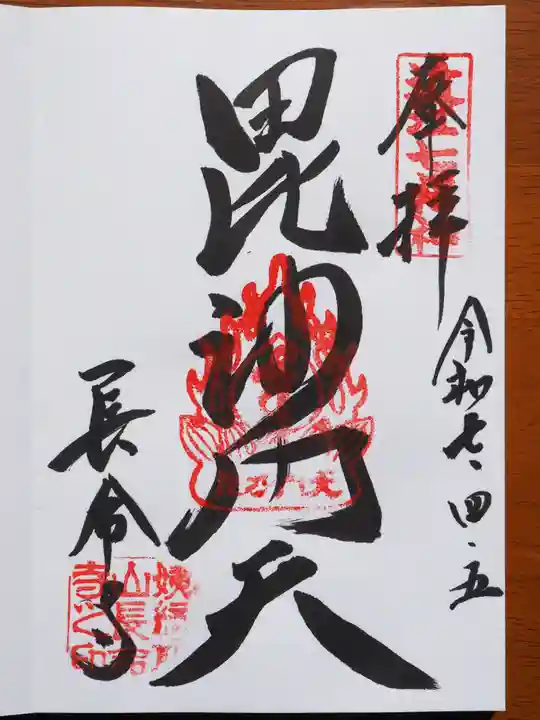 奉拝
令和七・四・五
毘沙門天
長命寺
姨綺耶
山長命
寺之印